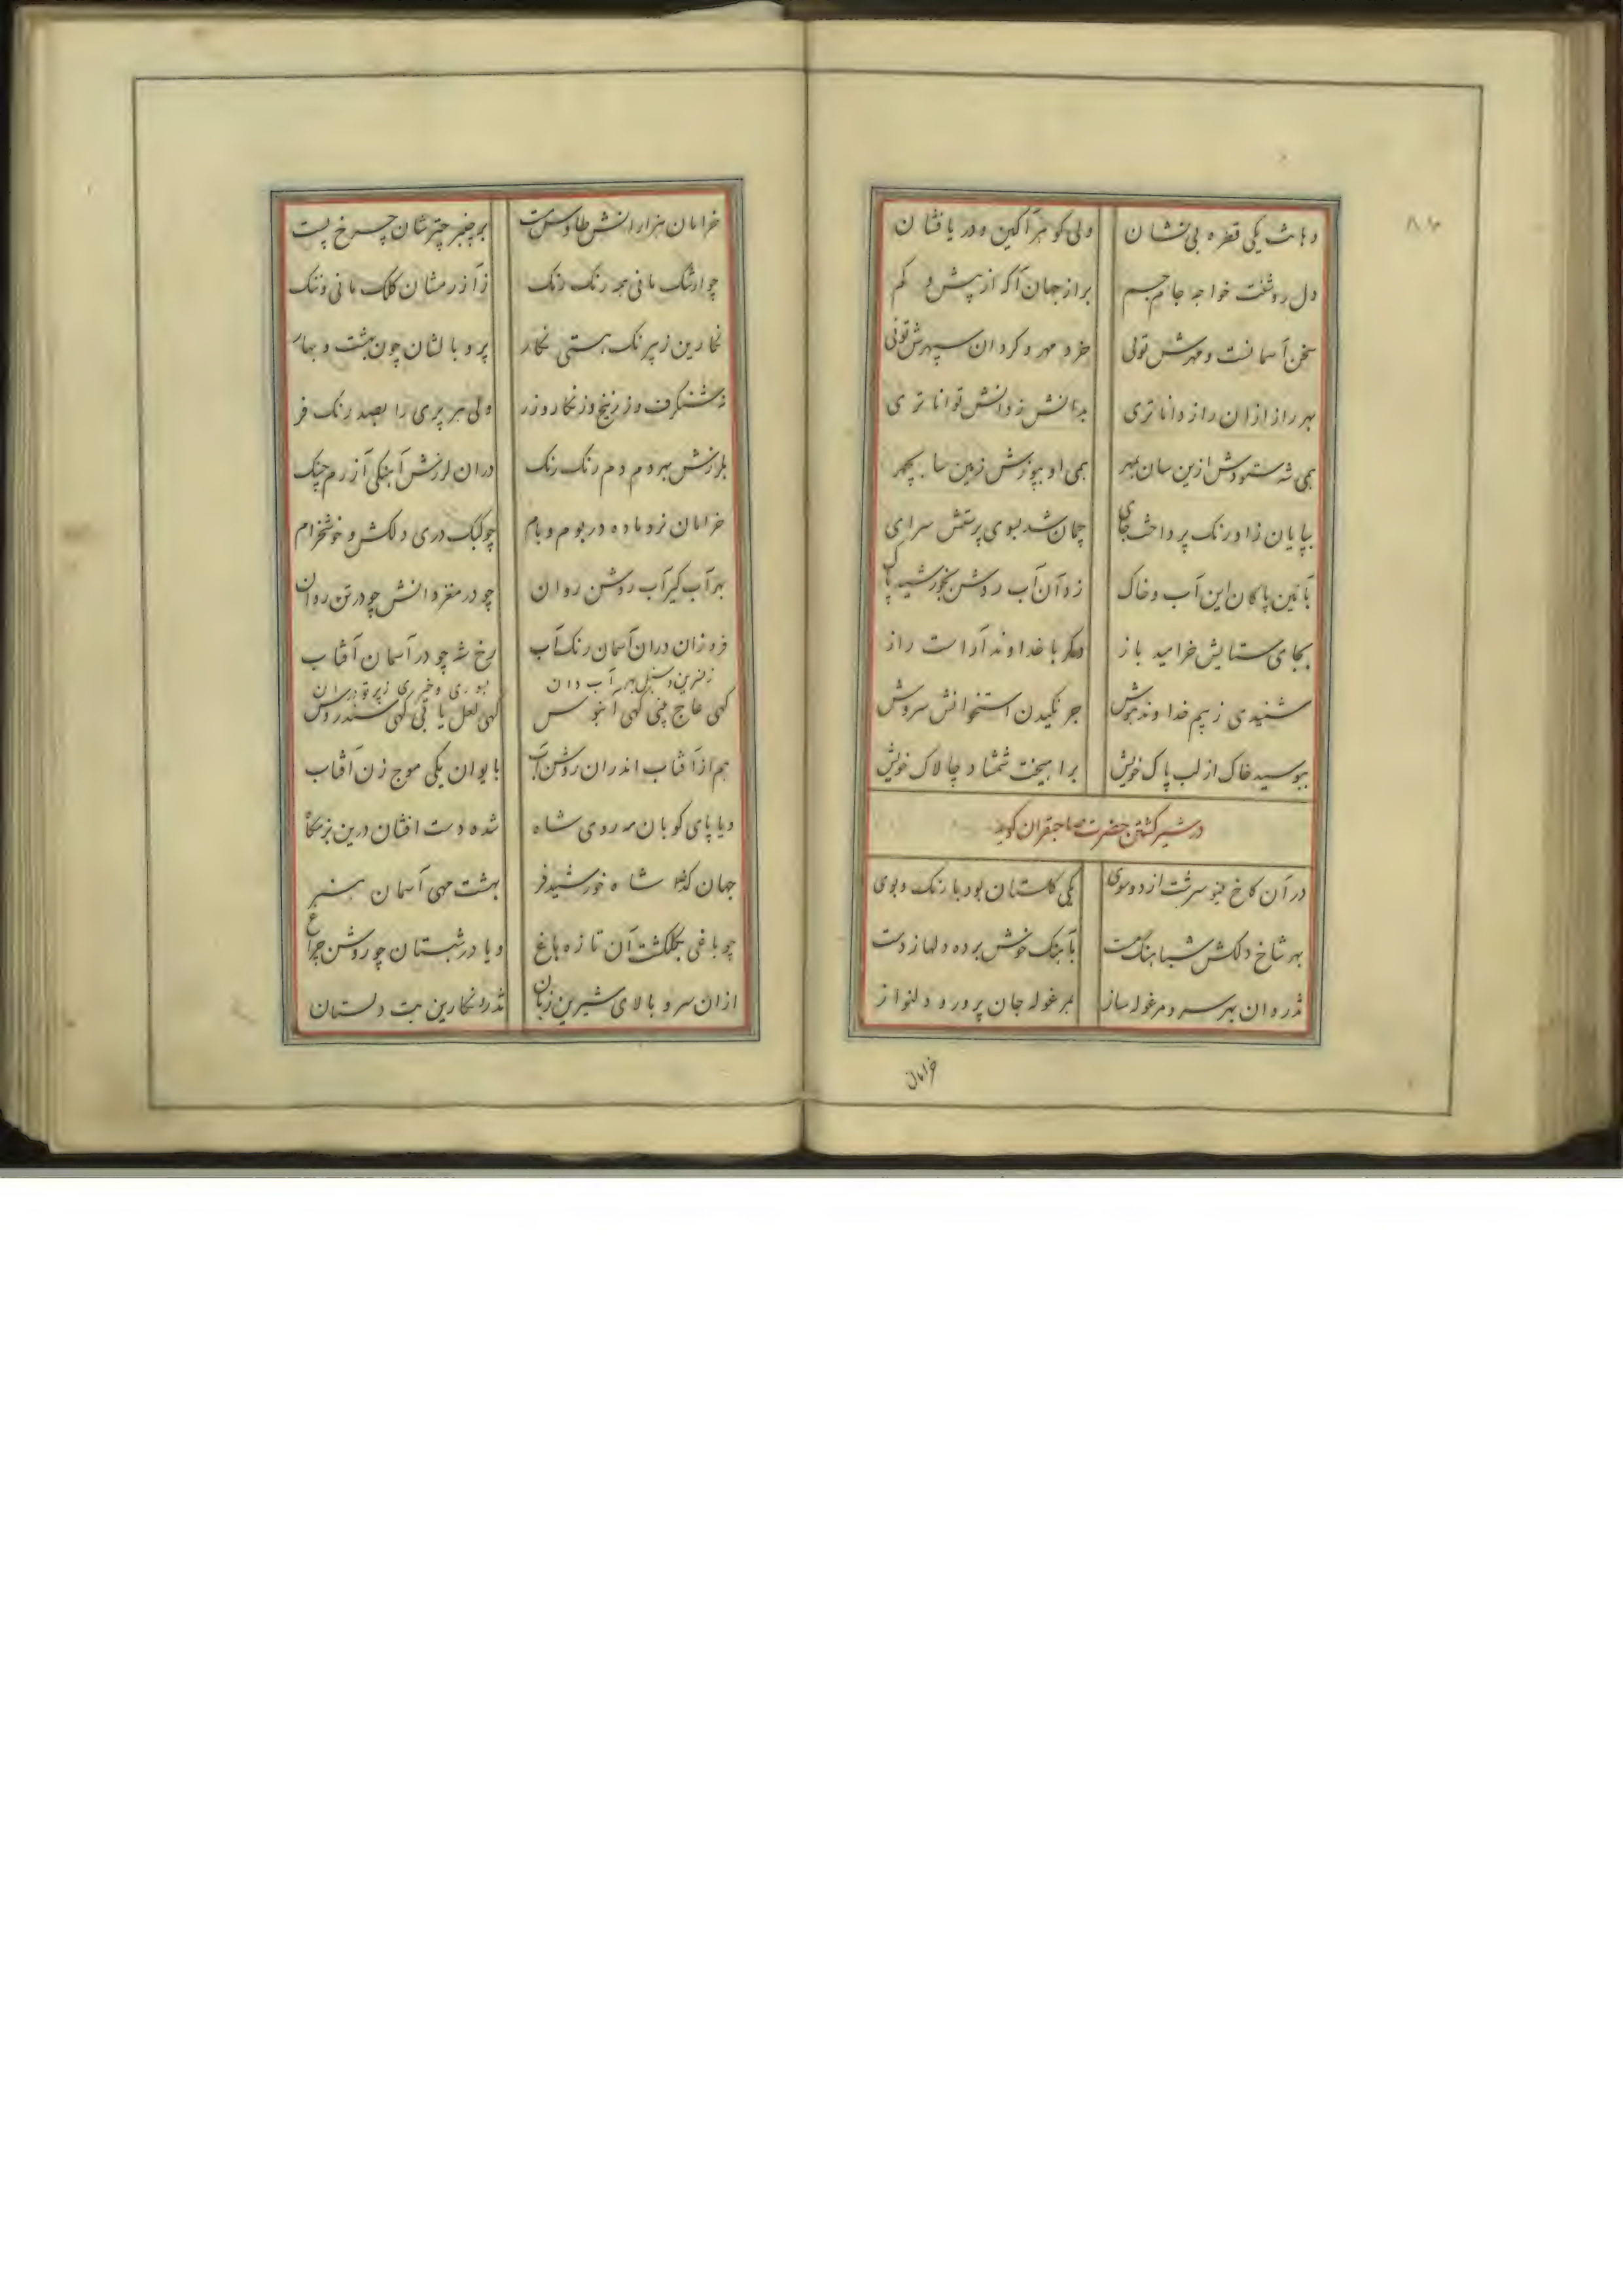 دهانت یکی قطره بی نشان ولی گوهر آگین و دریا فشان
دل روشنت خواجه جام جم براز جهان آگه از پیش و کم
سخن آسمانست و مهرش تویی خرد مهر و گردان سپهرش تویی
بهر راز ازان رازدانا تری بدانش ز دانش توانا تری
همی شه ستودش ازین سان بمهر همی او بپوزش زمین سا بچهر
بپایان ز اورنگ پرداخت جای چمان شد بسوی پرستش سرای
بآئین پاکان این آب و خاک زد آن آب روشن بخورشید پاک
بجای ستایش خرامید باز دگر با خداوند آراست راز
شنیدی ز بیم خداوند هوش جرنگیدن استخوانش سروش
ببوسید خاک از لب پاک خویش برامیخت شمشاد چالاک خویش
در شیر کشتن حضرت صاحبقران گوید
در آن کاخ مینو سرشت از دو سوی یکی گلستان بود با رنگ و بوی
بهر شاخ دلکش شباهنگ مست بآهنگ خوش برده دلها ز دست
تذروان بهر سرو مرغوله ساز بمرغوله جان پرور و دلنواز
خرامان
خرامان هزاران طاوس مست بر چنبر چترشان چرخ پست
چو ارتنگ مانی همه رنگ رنگ ز آزرمشان کلک مانی و ننگ
نگارین ز پر نک هستی نگار پر و بالشان چون بهشت و بهار
ز شنگرف و ز زرنیخ و زنگار و زر ولی هر پری را بصد رنگ فر
بلرزش بهر دم دم رنگ رنگ دران لرزش آهنگی آزرم چنگ
خرامان نر و ماده در بوم و بام چو کبک دری دلکش و خوشخرام
بهر آب گیر آب روشن روان چو در مغز دانش چو در تن روان
فروزان دران آسمان رنگ آب رخ شه چو در آسمان آفتاب
ز نسرین و سنبل بهر آب دان
گهی عاج چینی گهی آبنوس گهی لعل یا گهی سندروس
هم از آفتاب اندران روشن آب بایوان یکی موج زن آفتاب
و یا پای کوبان مه روی شاه شده دست افشان درین بزمگاه
جهان شاه خورشید فر بهشت مهی آسمان هنر
چو باغی بگلگشت آن تازه باغ و یا در شبستان چو روشن چراغ
ازان سرو بالای شیرین زبان تذرو نگارین بت دلستان